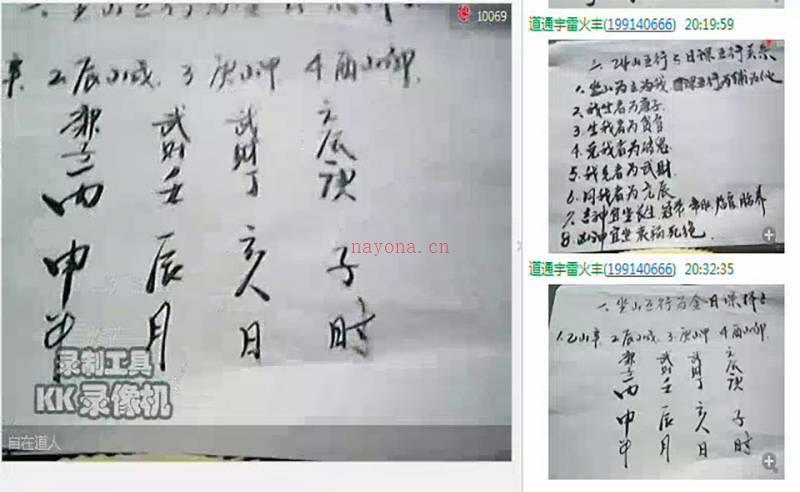 10069
2.辰山戌 3.庚山甲 4.酉山卯
武财 武财 元辰
丙 壬 丁 庚
申 辰 亥 子
年 月 日 时
录制工具
KK录像机
自在道人
nayona.cn
道通宇雷火丰(199140666) 20:19:59
二、坐山五行与日课五行关系
1. 坐山为主为我,日课五行为辅为他
2. 我生者为廉子
3. 生我者为贪官
4. 克我者为破鬼
5. 我克者为武财
6. 同我者为元辰
7. 吉神宜坐长生 冠带 帝旺 临官 胎养
8. 凶神宜坐衰病死绝。
道通宇雷火丰(199140666) 20:32:35
一、坐山五行为金日课择吉
1.乙山辛 2.辰山戌 3.庚山甲 4.酉山卯
武财 武财 元辰
丙 壬 丁 庚
申 辰 亥 子
年 月 日 时